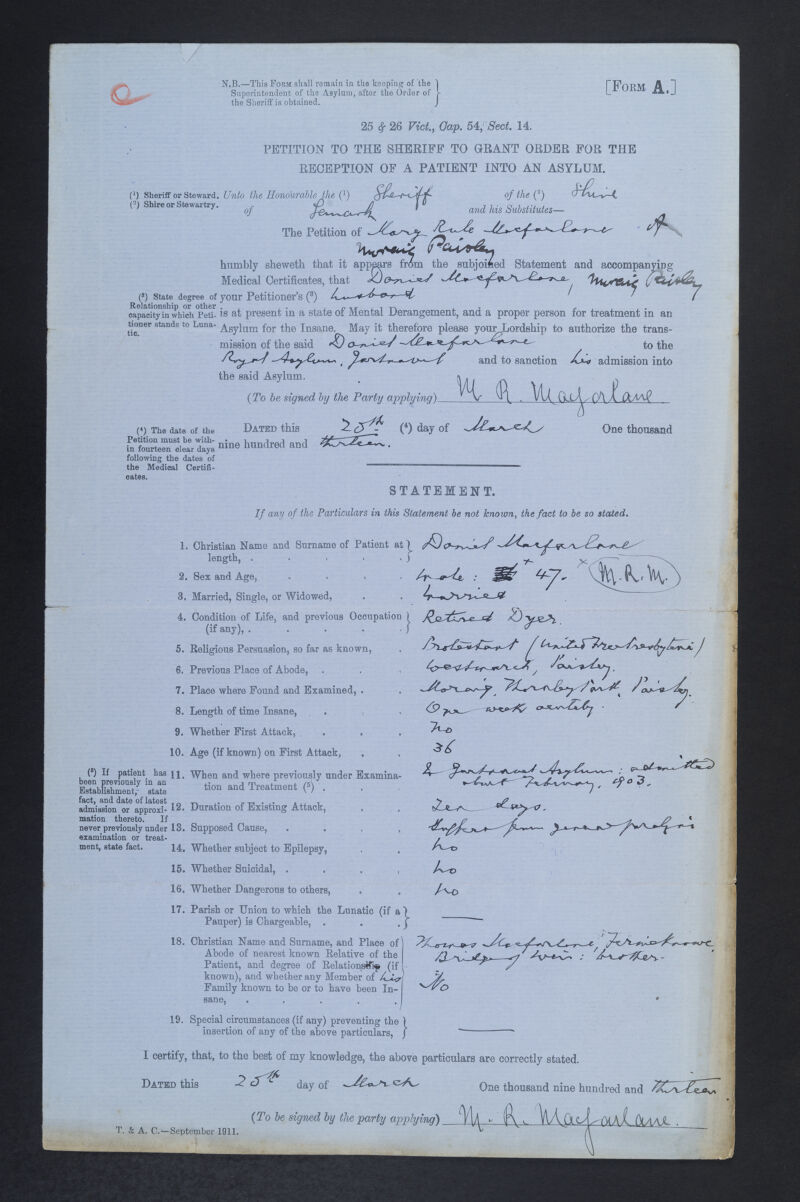 N.B.—This Form shall remain in the keeping of the
Superintendent of the Asylum, after the Order of
the Sheriff is obtained.
[Form A.]
25 & 26 Vict., Cap. 54, Sect. 14.
PETITION TO THE SHERIFF TO GRANT ORDER FOR THE
RECEPTION OF A PATIENT INTO AN ASYLUM.
(¹) Sheriff or Steward.
(²) Shire or Stewartry.
Unto the Honourable the (¹) Sheriff of the (²) Shire
of Lanark and his Substitutes—
The Petition of Mary Rule Macfarlane
Moraig Paisley
humbly sheweth that it appears from the subjoined Statement and accompanying
Medical Certificates, that Daniel Macfarlane, Moraig Paisley
(³) State degree of
Relationship or other
capacity in which Peti-
tioner stands to Luna-
tic.
your Petitioner's (³) husband
is at present in a state of Mental Derangement, and a proper person for treatment in an
Asylum for the Insane. May it therefore please your Lordship to authorize the trans-
mission of the said Daniel Macfarlane to the
Royal Asylum, Gartnavel and to sanction his admission into
the said Asylum.
(To be signed by the Party applying) M R. Macfarlane
(⁴) The date of the
Petition must be with-
in fourteen clear days
following the dates of
the Medical Certifi-
cates.
Dated this 25th (⁴) day of March One thousand
nine hundred and thirteen.
STATEMENT.
If any of the Particulars in this Statement be not known, the fact to be so stated.
1. Christian Name and Surname of Patient at
length, . Daniel Macfarlane
2. Sex and Age, male : 47. M.R.M.
3. Married, Single, or Widowed, married
4. Condition of Life, and previous Occupation
(if any), . Retired Dyer.
5. Religious Persuasion, so far as known, Protestant (United Free Presbyterian)
6. Previous Place of Abode, Westmarch, Paisley.
7. Place where Found and Examined, Moraig, Thornley Park, Paisley.
8. Length of time Insane, One week acutely.
9. Whether First Attack, No
10. Age (if known) on First Attack, 36
(⁵) If patient has
been previously in an
Establishment, state
fact, and date of latest
admission or approxi-
mation thereto. If
never previously under
examination or treat-
ment, state fact.
11. When and where previously under Examina-
tion and Treatment (⁵) . Gartnavel Asylum : admitted
about February, 1903.
12. Duration of Existing Attack, Ten days.
13. Supposed Cause, Suffers from general paralysis
14. Whether subject to Epilepsy, No
15. Whether Suicidal, No
16. Whether Dangerous to others, No
17. Parish or Union to which the Lunatic (if a
Pauper) is Chargeable, —
18. Christian Name and Surname, and Place of
Abode of nearest known Relative of the
Patient, and degree of Relationship (if
known), and whether any Member of his
Family known to be or to have been In-
sane,
Thomas Macfarlane,
Bridge of Weir : brother.
No
19. Special circumstances (if any) preventing the
insertion of any of the above particulars, —
I certify, that, to the best of my knowledge, the above particulars are correctly stated.
Dated this 25th day of March One thousand nine hundred and thirteen.
(To be signed by the party applying) M. R. Macfarlane.
T. & A. C.—September 1911.